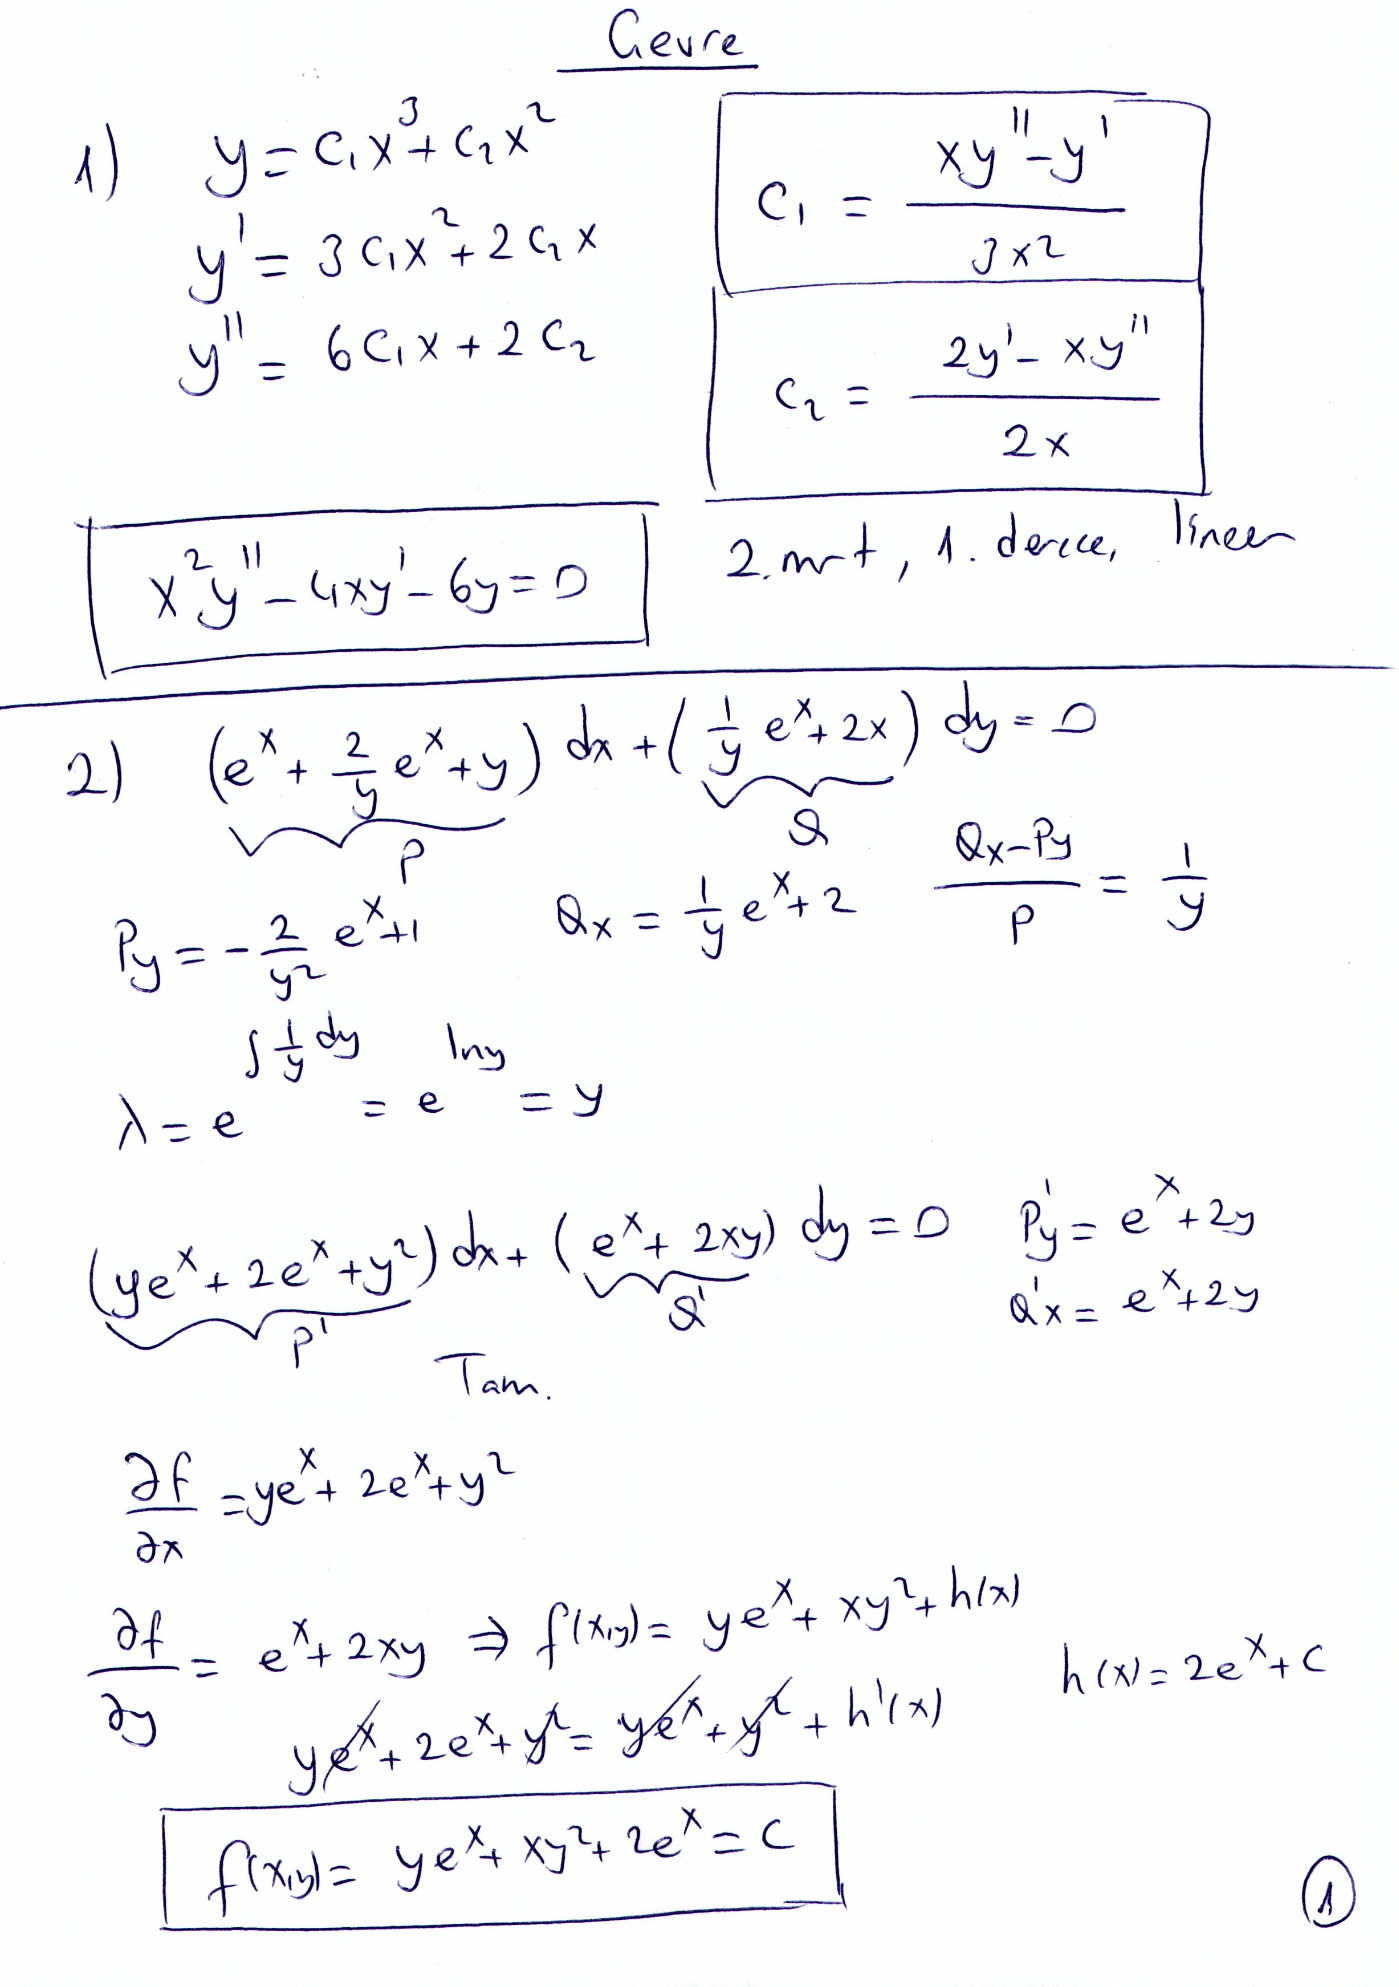 Gevre
1) y = c₁x³ + c₂x²
y' = 3c₁x² + 2c₂x
y'' = 6c₁x + 2c₂
c₁ = (xy'' - y') / 3x²
c₂ = (2y' - xy'') / 2x
x²y'' - 4xy' - 6y = 0
2. mrt, 1. derece, lineer
2) (eˣ + 2/y eˣ + y) dx + (1/y eˣ + 2x) dy = 0
P Q
Py = -2/y² eˣ + 1 Qx = 1/y eˣ + 2 (Qx - Py) / P = 1/y
λ = e^(∫ 1/y dy) = e^(lny) = y
(yeˣ + 2eˣ + y²) dx + (eˣ + 2xy) dy = 0 P'y = eˣ + 2y
P' Q' Q'x = eˣ + 2y
Tam.
∂f/∂x = yeˣ + 2eˣ + y²
∂f/∂y = eˣ + 2xy ⇒ f(x,y) = yeˣ + xy² + h(x)
yeˣ + 2eˣ + y² = yeˣ + y² + h'(x) h(x) = 2eˣ + c
f(x,y) = yeˣ + xy² + 2eˣ = c
1